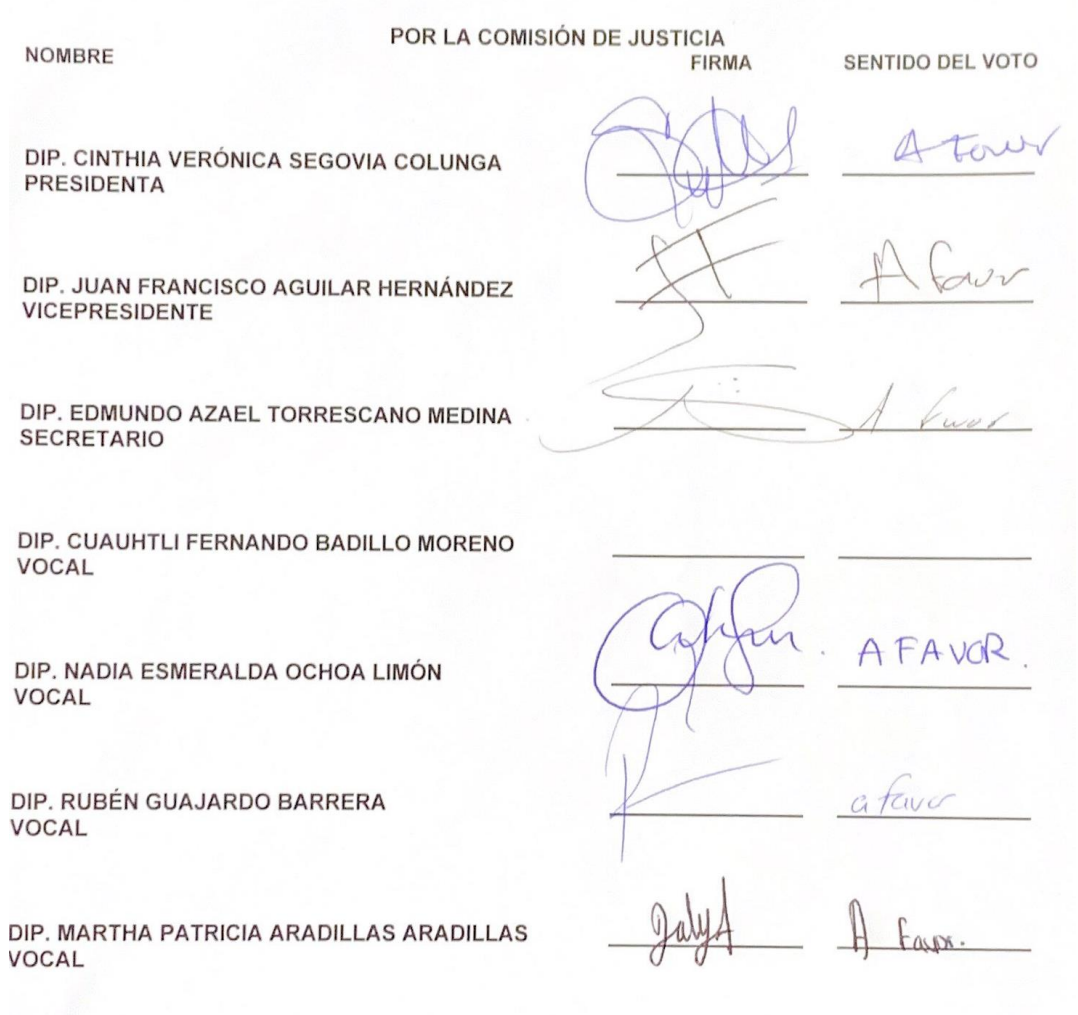 POR LA COMISIÓN DE JUSTICIA
NOMBRE FIRMA SENTIDO DEL VOTO
DIP. CINTHIA VERÓNICA SEGOVIA COLUNGA A Favor
PRESIDENTA
DIP. JUAN FRANCISCO AGUILAR HERNÁNDEZ A favor
VICEPRESIDENTE
DIP. EDMUNDO AZAEL TORRESCANO MEDINA A favor
SECRETARIO
DIP. CUAUHTLI FERNANDO BADILLO MORENO
VOCAL
DIP. NADIA ESMERALDA OCHOA LIMÓN A FAVOR.
VOCAL
DIP. RUBÉN GUAJARDO BARRERA a favor
VOCAL
DIP. MARTHA PATRICIA ARADILLAS ARADILLAS A Favor.
VOCAL